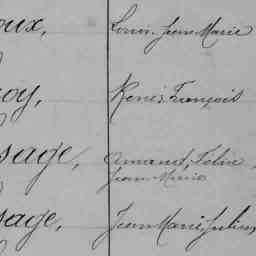 oux, Louis Jean Marie
oy, René, François
sage, Amand, Felix,
Jean Marie
sage, Jean Marie, Julien,